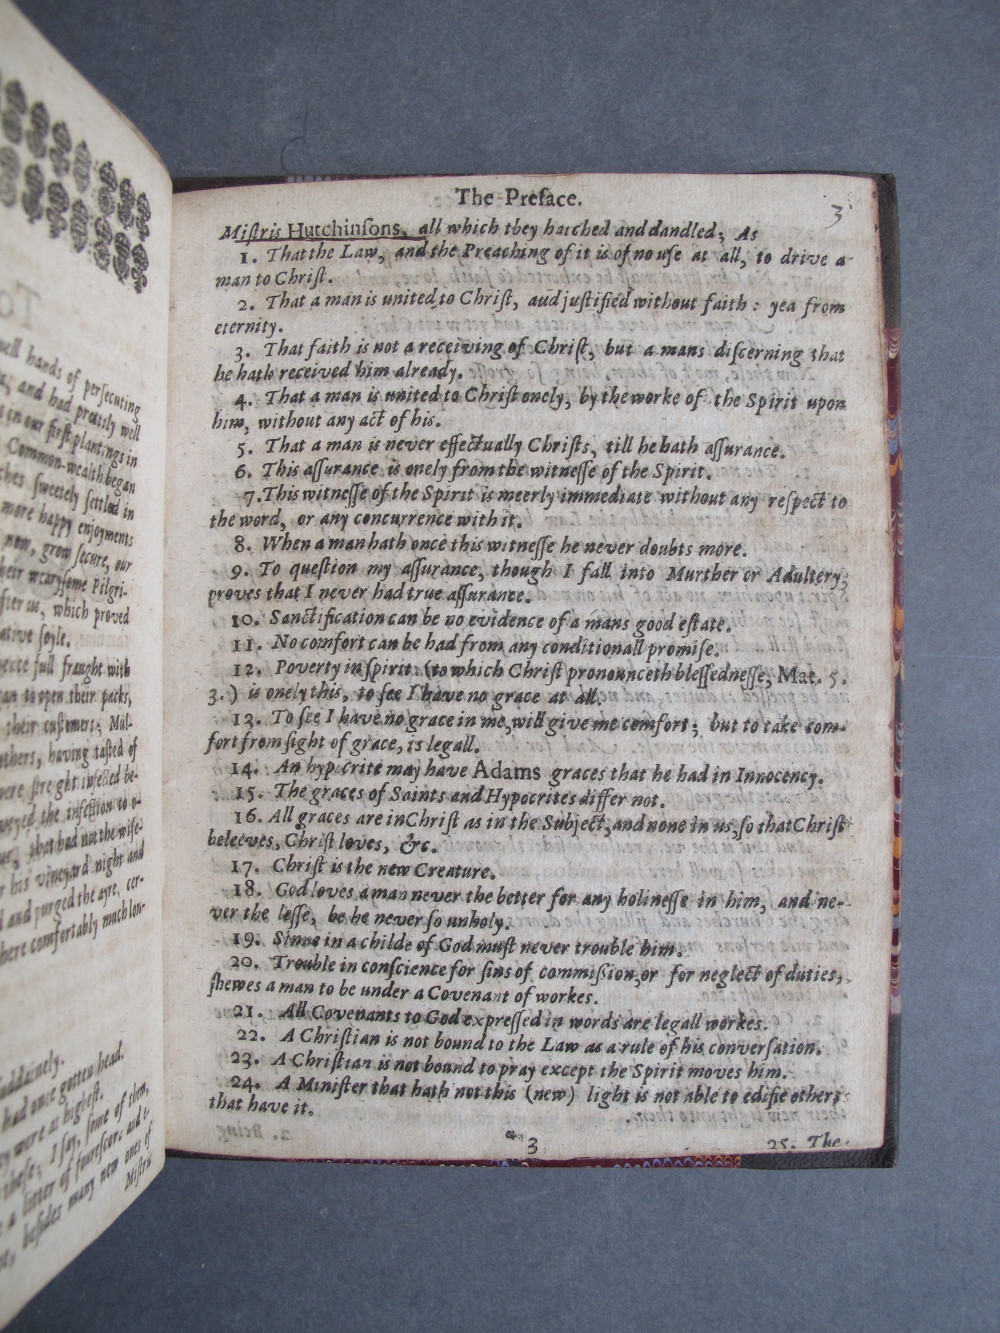 well hands of persecuting
and had prettily well
s in our first plantings in
Common-wealth began
ches sweetely setled in
more happy enjoyments
new, grow secure, our
heir wearysome Pilgri-
fter us, which proved
ative soyle.
full fraught with
an to open their packs,
their customers; Mul-
others, having tasted of
were streight infected be-
veyed the infection to o-
that had not the wise-
r his vineyard night and
d and purged the ayre, cer-
here comfortably much lon-
uddainely.
had once gotten head.
ey were at highest.
these; I say, some of them,
a litter of fourescore and
besides many new ones of
Mistris
The Preface.
3
Miſtris Hutchinſons, all which they hatched and dandled; As
1. That the Law, and the Preaching of it is of no uſe at all, to drive a
man to Chriſt.
2. That a man is united to Chriſt, aud juſtified without faith: yea from
eternity.
3. That faith is not a receiving of Chriſt, but a mans diſcerning that
he hath received him already.
4. That a man is united to Chriſt onely, by the worke of the Spirit upon
him, without any act of his.
5. That a man is never effectually Chriſts, till he hath aſſurance.
6. This aſſurance is onely from the witneſſe of the Spirit.
7. This witneſſe of the Spirit is meerly immediate without any reſpect to
the word, or any concurrence with it.
8. When a man hath once this witneſſe he never doubts more.
9. To queſtion my aſſurance, though I fall into Murther or Adultery,
proves that I never had true aſſurance.
10. Sanctification can be no evidence of a mans good eſtate.
11. No comfort can be had from any conditionall promiſe.
12. Poverty in ſpirit (to which Chriſt pronounceth bleſſedneſſe, Mat. 5.
3.) is onely this, to ſee I have no grace at all.
13. To ſee I have no grace in me, will give me comfort; but to take com-
fort from ſight of grace, is legall.
14. An hypocrite may have Adams graces that he had in Innocency.
15. The graces of Saints and Hypocrites differ not.
16. All graces are in Chriſt as in the Subject, and none in us, ſo that Chriſt
beleeves, Chriſt loves, &c.
17. Chriſt is the new Creature.
18. God loves a man never the better for any holineſſe in him, and ne-
ver the leſſe, be he never ſo unholy.
19. Sinne in a childe of God muſt never trouble him.
20. Trouble in conſcience for ſins of commiſſion, or for neglect of duties,
ſhewes a man to be under a Covenant of workes.
21. All Covenants to God expreſſed in words are legall workes.
22. A Chriſtian is not bound to the Law as a rule of his converſation.
23. A Chriſtian is not bound to pray except the Spirit moves him.
24. A Miniſter that hath not this (new) light is not able to edifie others
that have it.
* 3
25. The